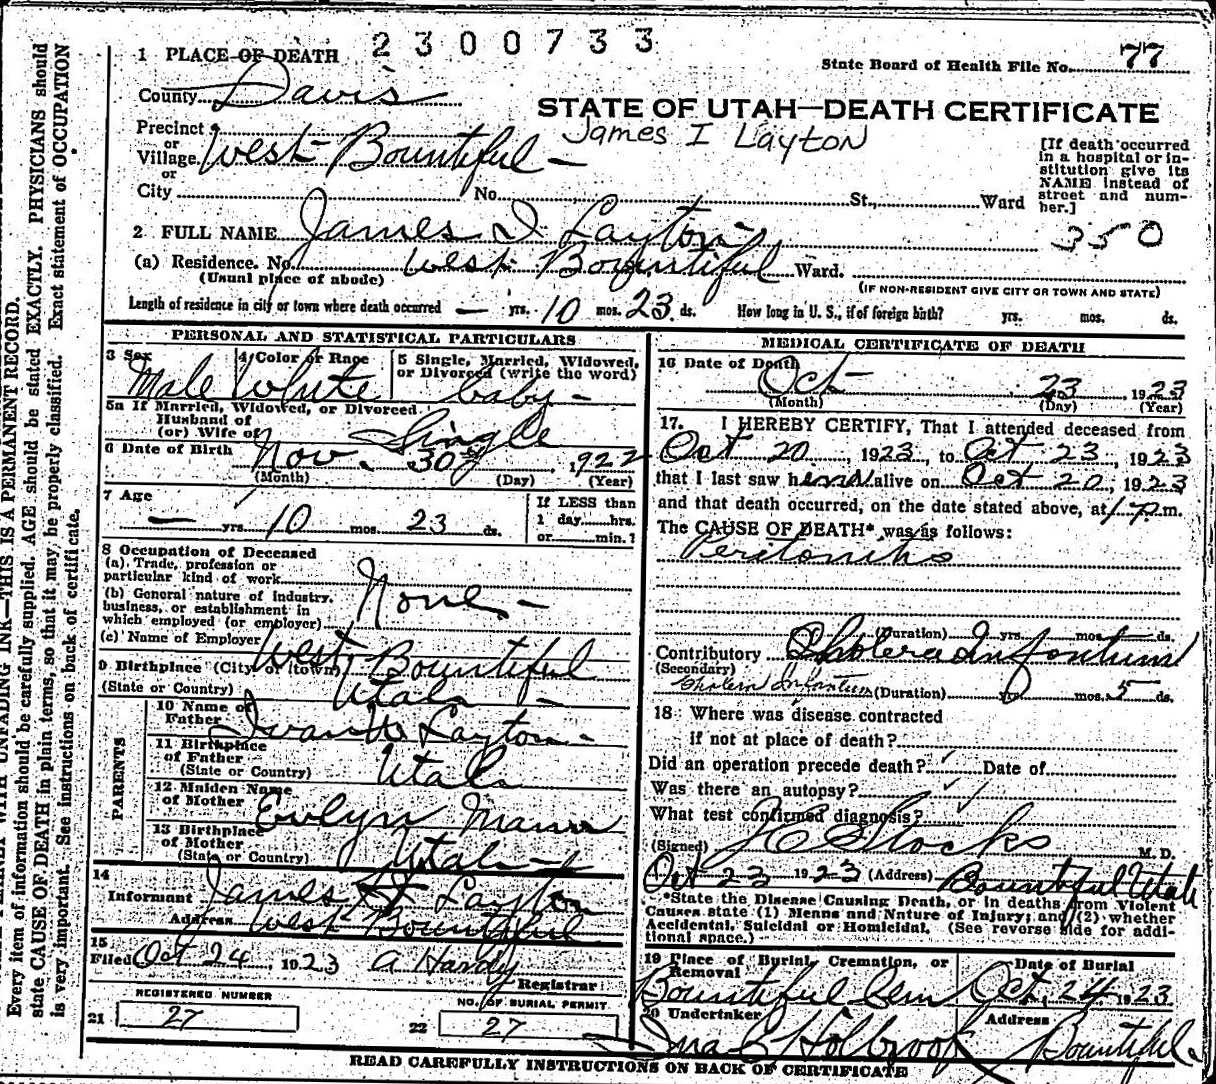 2300733
1 PLACE OF DEATH
State Board of Health File No. 77
County Davis
STATE OF UTAH—DEATH CERTIFICATE
James I Layton
Precinct
or
Village West Bountiful
or
City No. St., Ward
[If death occurred
in a hospital or in-
stitution give its
NAME instead of
street and num-
ber.]
350
2 FULL NAME James I Layton
(a) Residence. No. West Bountiful Ward.
(Usual place of abode)
(IF NON-RESIDENT GIVE CITY OR TOWN AND STATE)
Length of residence in city or town where death occurred — yrs. 10 mos. 23 ds. How long in U. S., if of foreign birth? yrs. mos. ds.
PERSONAL AND STATISTICAL PARTICULARS
3 Sex Male
4 Color or Race White
5 Single, Married, Widowed,
or Divorced (write the word)
baby
5a If Married, Widowed, or Divorced
Husband of
(or) Wife of
Single
6 Date of Birth Nov. 30, 1922
(Month) (Day) (Year)
7 Age
— yrs. 10 mos. 23 ds.
If LESS than
1 day......hrs.
or......min.?
8 Occupation of Deceased
(a) Trade, profession or
particular kind of work
(b) General nature of industry,
business, or establishment in
which employed (or employer)
None
(c) Name of Employer
9 Birthplace (City or town) West Bountiful
(State or Country) Utah
PARENTS
10 Name of
Father Ivan Layton
11 Birthplace
of Father
(State or Country) Utah
12 Maiden Name
of Mother Evlyn Mann
13 Birthplace
of Mother
(State or Country) Utah
14
Informant James Layton
Address West Bountiful
15
Filed Oct 24, 1923 A Hardy
Registrar
REGISTERED NUMBER
21 27
NO. OF BURIAL PERMIT
22 27
MEDICAL CERTIFICATE OF DEATH
16 Date of Death
Oct 23 1923
(Month) (Day) (Year)
17. I HEREBY CERTIFY, That I attended deceased from
Oct 20, 1923, to Oct 23, 1923
that I last saw h alive on Oct 20, 1923
and that death occurred, on the date stated above, at 1 P.m.
The CAUSE OF DEATH* was as follows:
Peritonitis
(Duration) yrs. mos. ds.
Contributory Cholera Infantum
(Secondary)
Cholera Infantum (Duration) mos. 5 ds.
18 Where was disease contracted
if not at place of death?
Did an operation precede death? Date of
Was there an autopsy?
What test confirmed diagnosis?
(Signed) Stocks M. D.
Oct 23 1923 (Address) Bountiful Utah
*State the Disease Causing Death, or in deaths from Violent
Causes state (1) Means and Nature of Injury; and (2) whether
Accidental, Suicidal or Homicidal. (See reverse side for addi-
tional space.)
19 Place of Burial, Cremation, or
Removal
Bountiful Cem
Date of Burial
Oct, 24 1923
20 Undertaker
Holbrook
Address
Bountiful
READ CAREFULLY INSTRUCTIONS ON BACK OF CERTIFICATE
WITH UNFADING INK—THIS IS A PERMANENT RECORD.
Every item of information should be carefully supplied. AGE should be stated EXACTLY. PHYSICIANS should
state CAUSE OF DEATH in plain terms, so that it may be properly classified. Exact statement of OCCUPATION
is very important. See instructions on back of certificate.